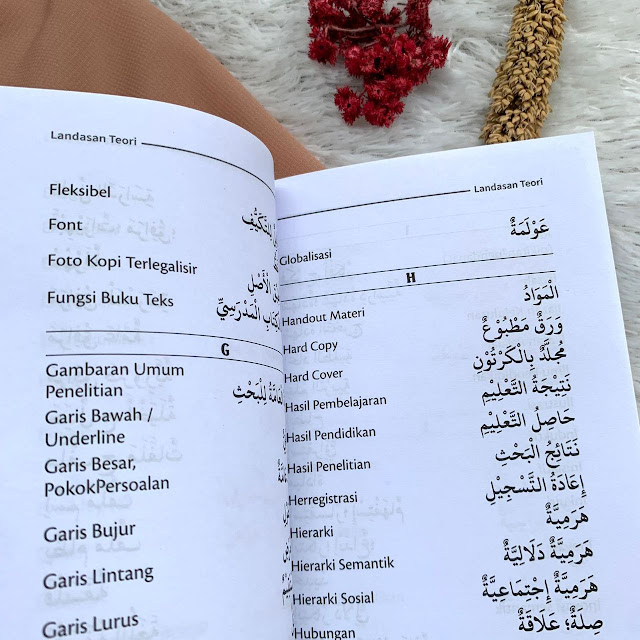 Landasan Teori
Fleksibel
Font
Foto Kopi Terlegalisir الْأَصْلِ
Fungsi Buku Teks الْمَدْرَسِيِّ
G
Gambaran Umum
Penelitian لِلْبَحْثِ
Garis Bawah /
Underline
Garis Besar,
PokokPersoalan
Garis Bujur
Garis Lintang
Garis Lurus
Landasan Teori
Globalisasi عَوْلَمَةٌ
H
Handout Materi الْمَوَادُ
Hard Copy وَرَقٌ مَطْبُوْعٌ
Hard Cover مُجَلَّدٌ بِالْكَرْتُوْنِ
Hasil Pembelajaran نَتِيْجَةُ التَّعْلِيْمِ
Hasil Pendidikan حَاصِلُ التَّعْلِيْمِ
Hasil Penelitian نَتَائِجُ الْبَحْثِ
Herregistrasi إِعَادَةُ التَّسْجِيْلِ
Hierarki هَرَمِيَّةٌ
Hierarki Semantik هَرَمِيَّةٌ دَلَالِيَّةٌ
Hierarki Sosial هَرَمِيَّةٌ إِجْتِمَاعِيَّةٌ
Hubungan صِلَةٌ؛ عَلَاقَةٌ